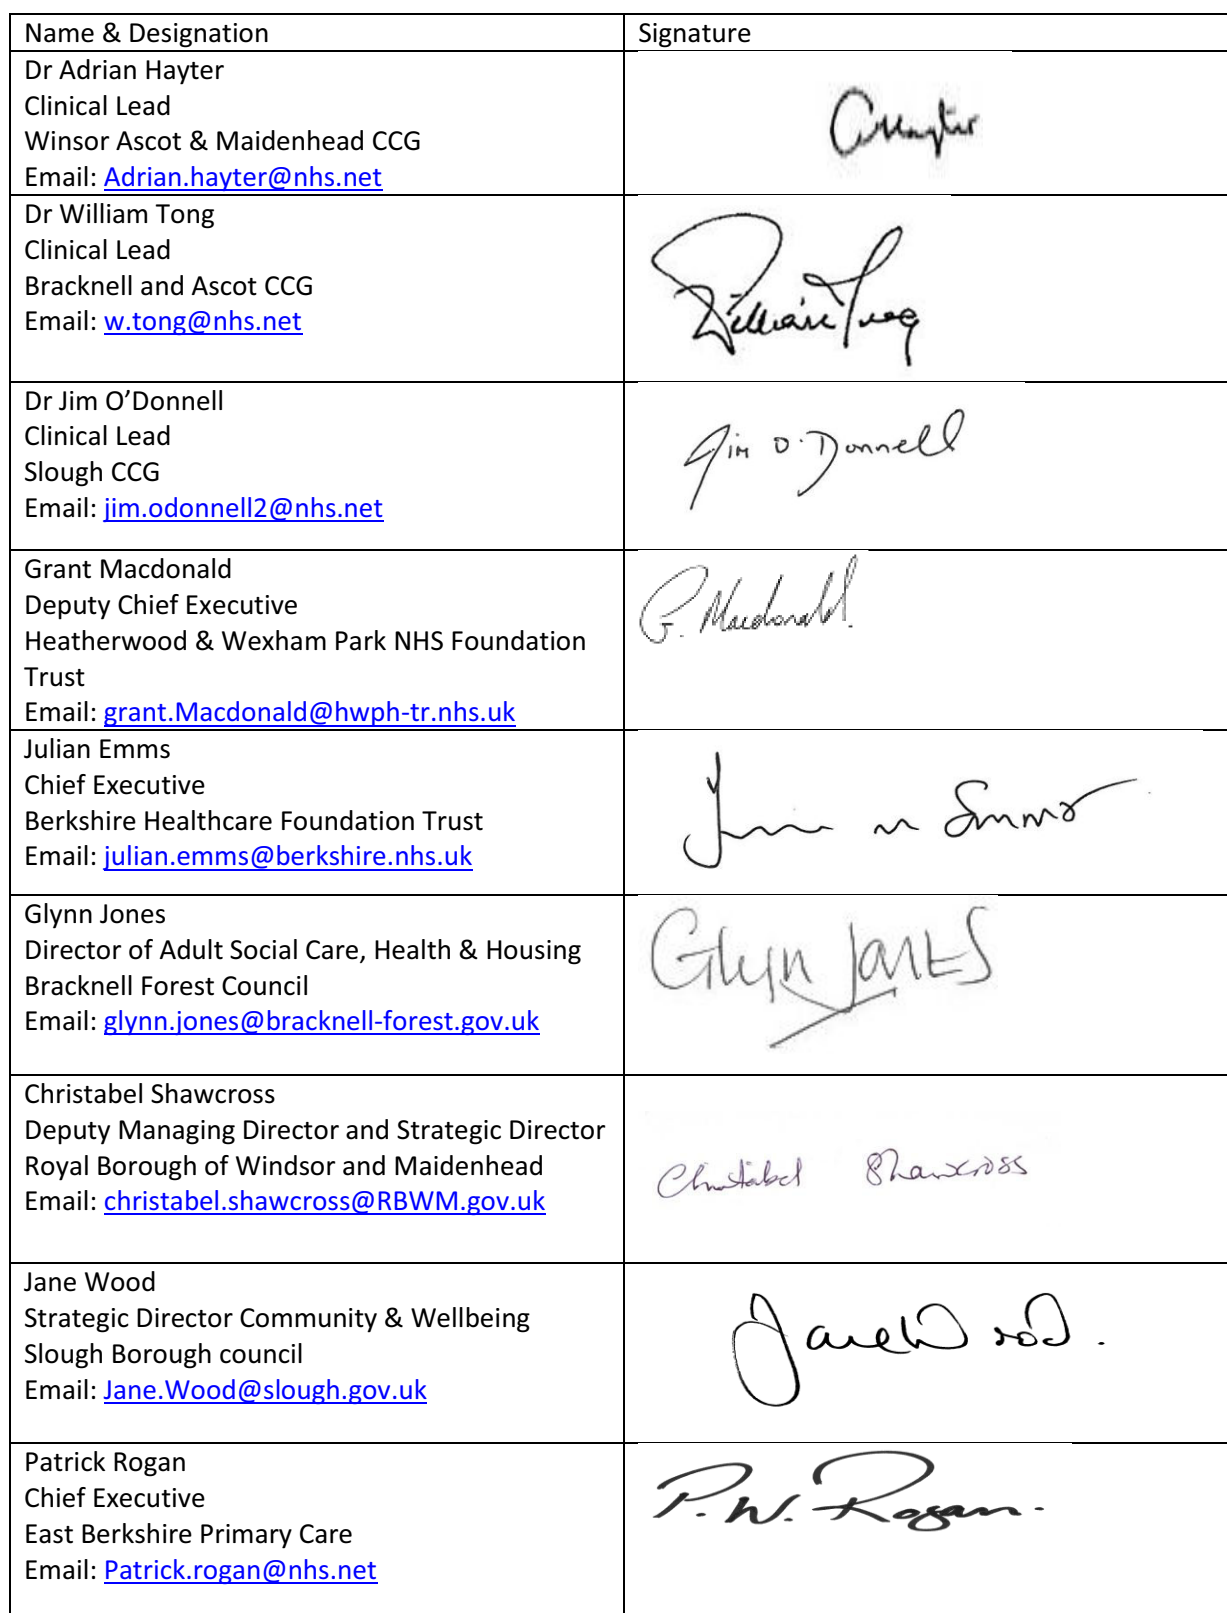 Name & Designation
Signature
Dr Adrian Hayter
Clinical Lead
Winsor Ascot & Maidenhead CCG
Email: Adrian.hayter@nhs.net
AHayter
Dr William Tong
Clinical Lead
Bracknell and Ascot CCG
Email: w.tong@nhs.net
William Tong
Dr Jim O’Donnell
Clinical Lead
Slough CCG
Email: jim.odonnell2@nhs.net
Jim O'Donnell
Grant Macdonald
Deputy Chief Executive
Heatherwood & Wexham Park NHS Foundation
Trust
Email: grant.Macdonald@hwph-tr.nhs.uk
G. Macdonald.
Julian Emms
Chief Executive
Berkshire Healthcare Foundation Trust
Email: julian.emms@berkshire.nhs.uk
Emms
Glynn Jones
Director of Adult Social Care, Health & Housing
Bracknell Forest Council
Email: glynn.jones@bracknell-forest.gov.uk
Glyn Jones
Christabel Shawcross
Deputy Managing Director and Strategic Director
Royal Borough of Windsor and Maidenhead
Email: christabel.shawcross@RBWM.gov.uk
Christabel Shawcross
Jane Wood
Strategic Director Community & Wellbeing
Slough Borough council
Email: Jane.Wood@slough.gov.uk
Jane Wood.
Patrick Rogan
Chief Executive
East Berkshire Primary Care
Email: Patrick.rogan@nhs.net
P.W. Rogan.